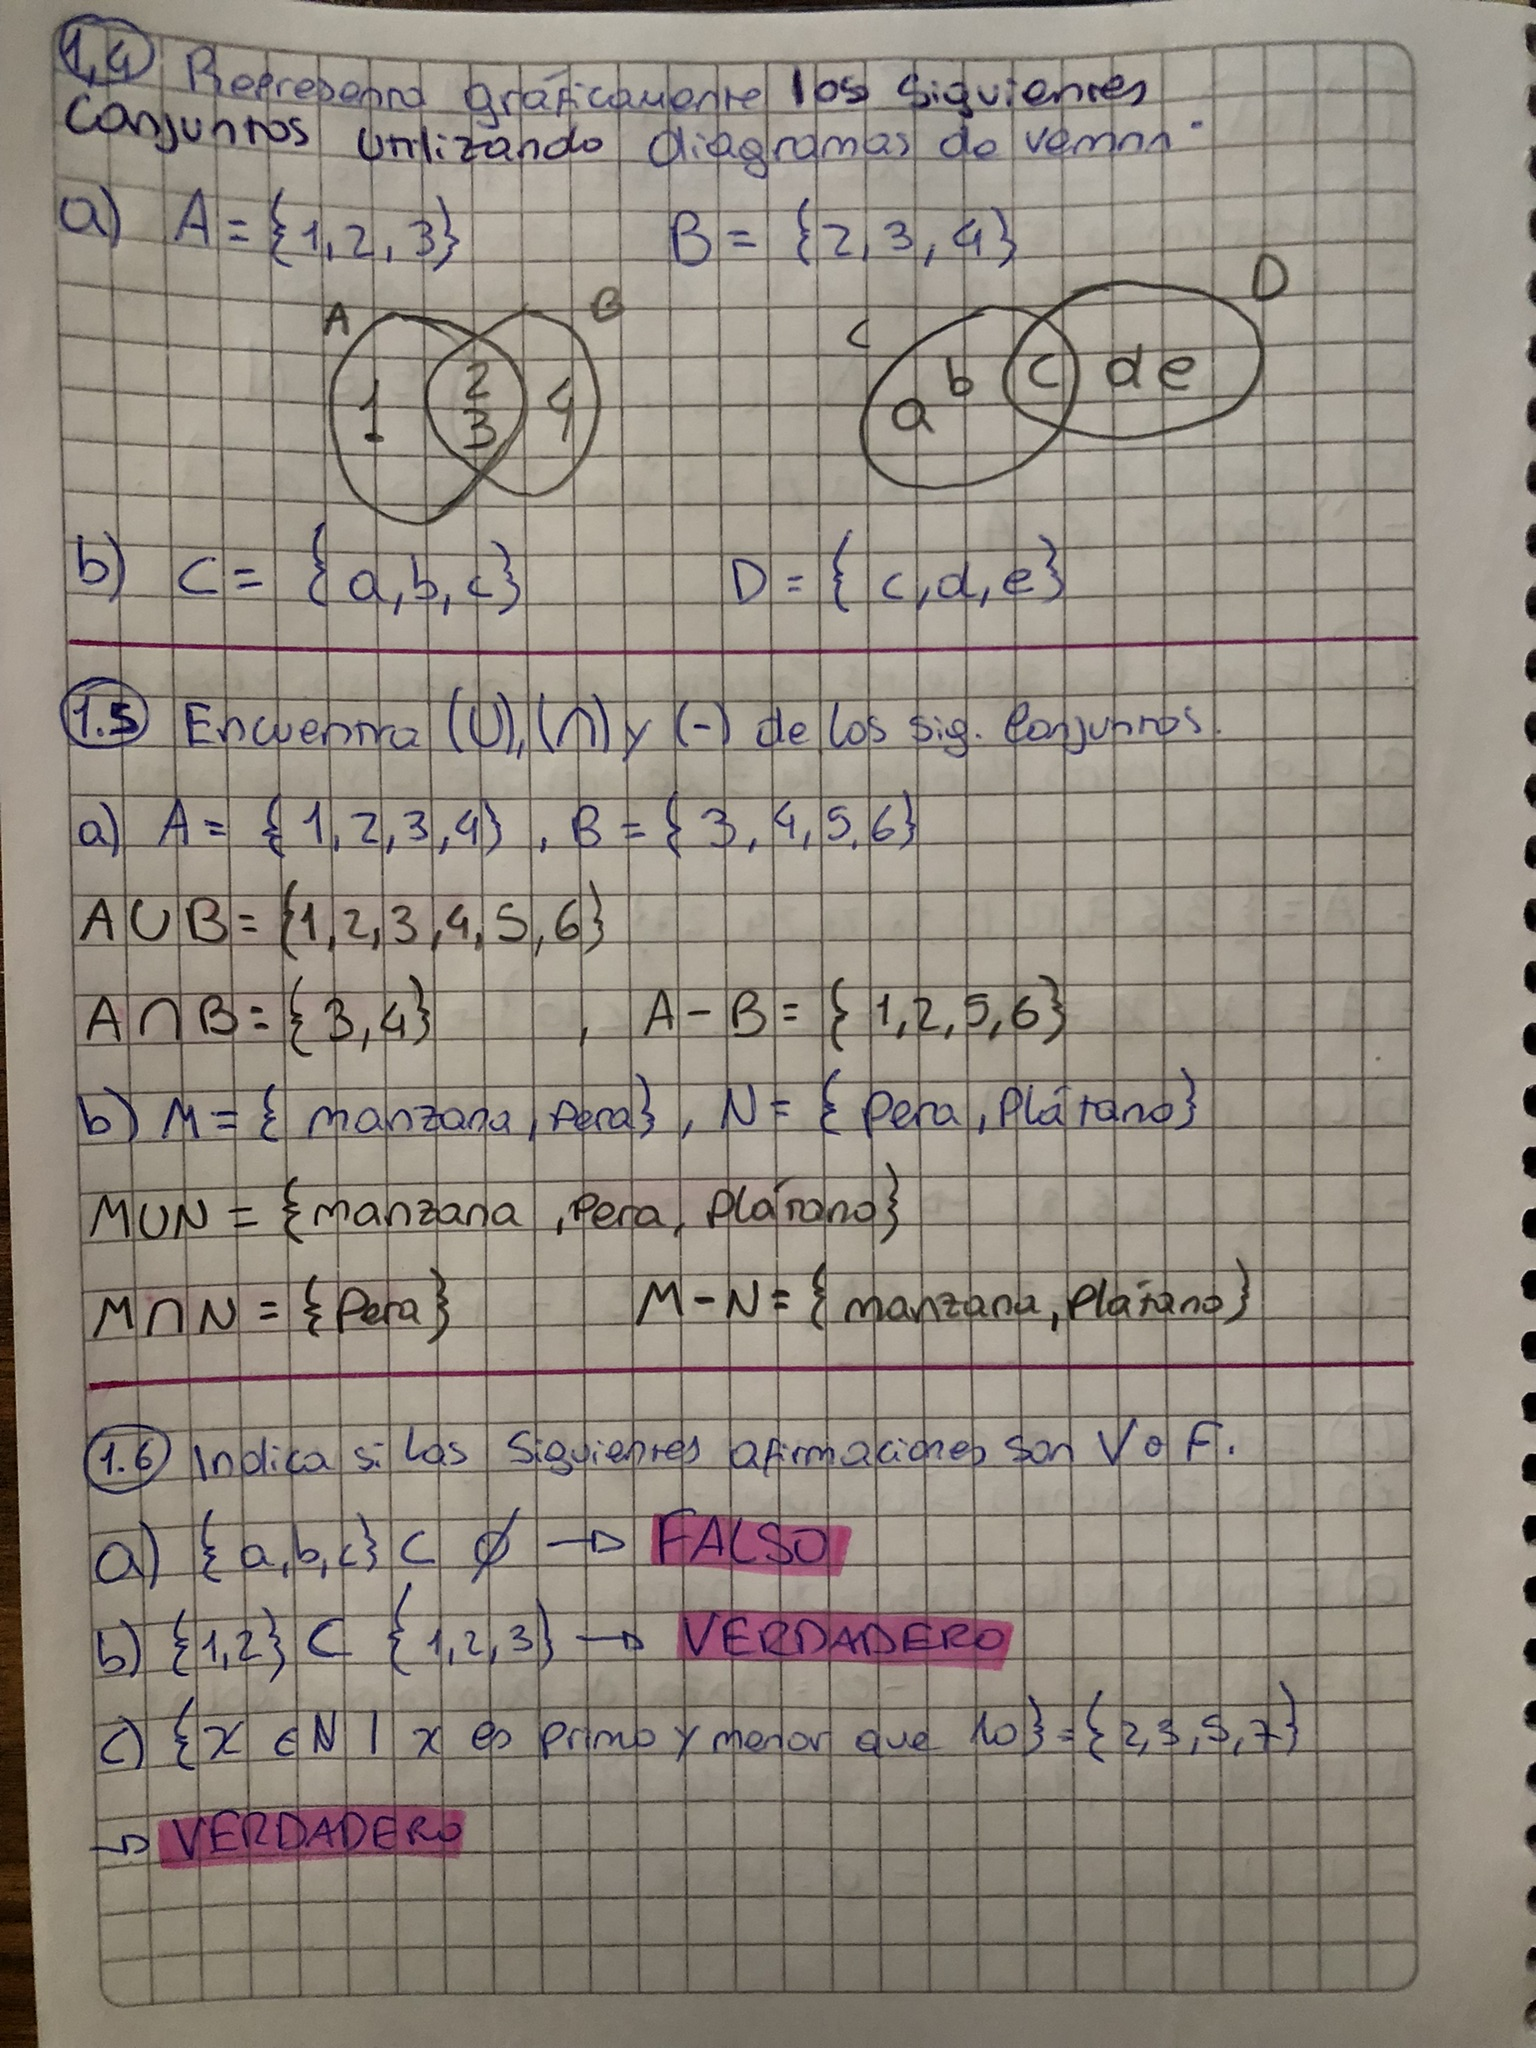 1.4 Representa gráficamente los siguientes
conjuntos utilizando diagramas de vennn.
a) A = {1, 2, 3} B = {2, 3, 4}
A B C D
1 2 3 4 a b c d e
b) C = {a, b, c} D = {c, d, e}
1.5 Encuentra (U), (∩) y (-) de los sig. Conjuntos.
a) A = {1, 2, 3, 4}, B = {3, 4, 5, 6}
A U B = {1, 2, 3, 4, 5, 6}
A ∩ B = {3, 4} , A - B = {1, 2, 5, 6}
b) M = {manzana, Pera}, N = {Pera, Plátano}
M U N = {manzana, Pera, Plátano}
M ∩ N = {Pera} M - N = {manzana, Plátano}
1.6 Indica si las siguientes afirmaciones son V o F.
a) {a, b, c} ⊂ ∅ → FALSO
b) {1, 2} ⊂ {1, 2, 3} → VERDADERO
c) {x ∈ N | x es primo y menor que 10} = {2, 3, 5, 7}
→ VERDADERO